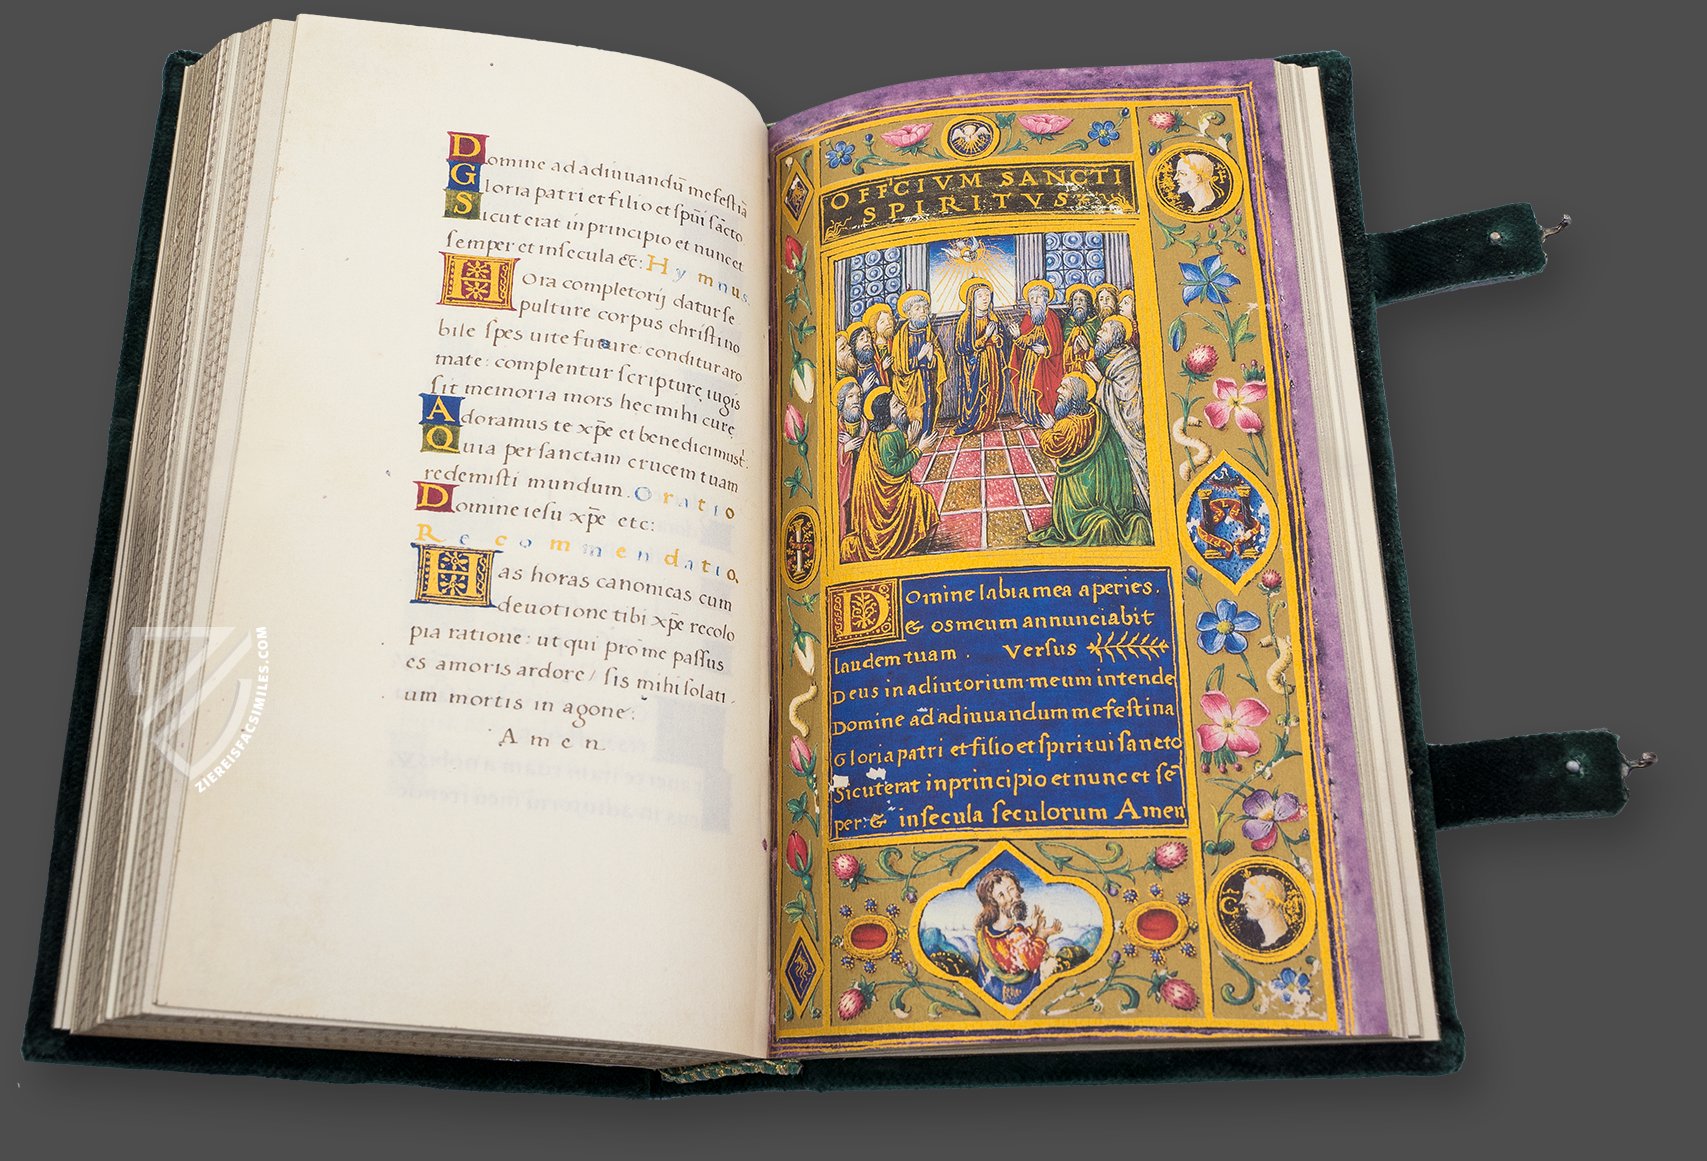 Domine ad adiuuandū me festiā
Gloria patri et filio et spūi sācto
Sicut erat in principio et nunc et
semper et in secula etc: Hymnus
Hora completorij datur se
pulture corpus christi no
bile spes uite future: conditur aro
mate: complentur scripturę iugis
sit memoria mors hec mihi curę
Adoramus te xp̄e et benedicimus t:
Quia per sanctam crucem tuam
redemisti mundum. Oratio
Domine iesu xp̄e etc:
Recommendatio
Has horas canonicas cum
deuotione tibi xp̄e recolo
pia ratione: ut qui pro me passus
es amoris ardore / sis mihi solati
um mortis in agone:
Amen
OFFCIVM SANCTI
SPIRITVS
Domine labia mea aperies.
& os meum annunciabit
laudem tuam. Versus
Deus in adiutorium meum intende
Domine ad adiuuandum me festina
Gloria patri et filio et spiritui sancto
Sicut erat in principio et nunc et sē
per: & in secula seculorum Amen
ZIEREISFACSIMILES.COM